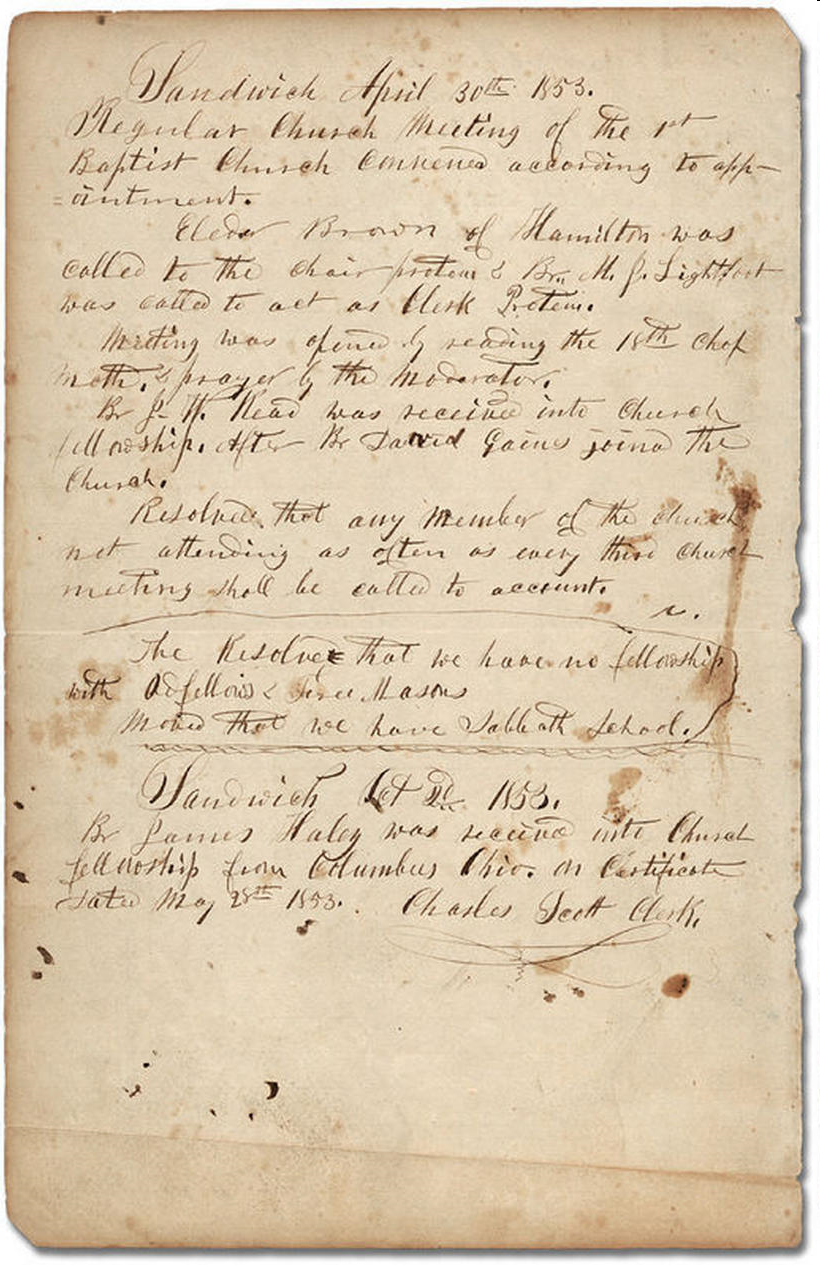 Sandwich April 30th 1853.
Regular Church Meeting of the 1st
Baptist Church Convened according to app-
=ointment.
Elder Brown of Hamilton was
called to the chair protem & Br. M. J. Lightfoot
was called to act as Clerk Protem.
Meeting was opened by reading the 18th Chap
Math. & prayer by the Moderator.
Br J. H. Read was received into Church
fellowship. After Br David Gains joined the
Church.
Resolved, that any member of the church
not attending as often as every third church
meeting shall be called to account.
The Resolve that we have no fellowship
with Odfellows & Free Masons
Moved that we have Sabbath School.
Sandwich Oct 2d 1853.
Br James Haley was received into Church
fellowship from Columbus Ohio. on Certificate
dated May 28th 1853. Charles Scott Clerk.